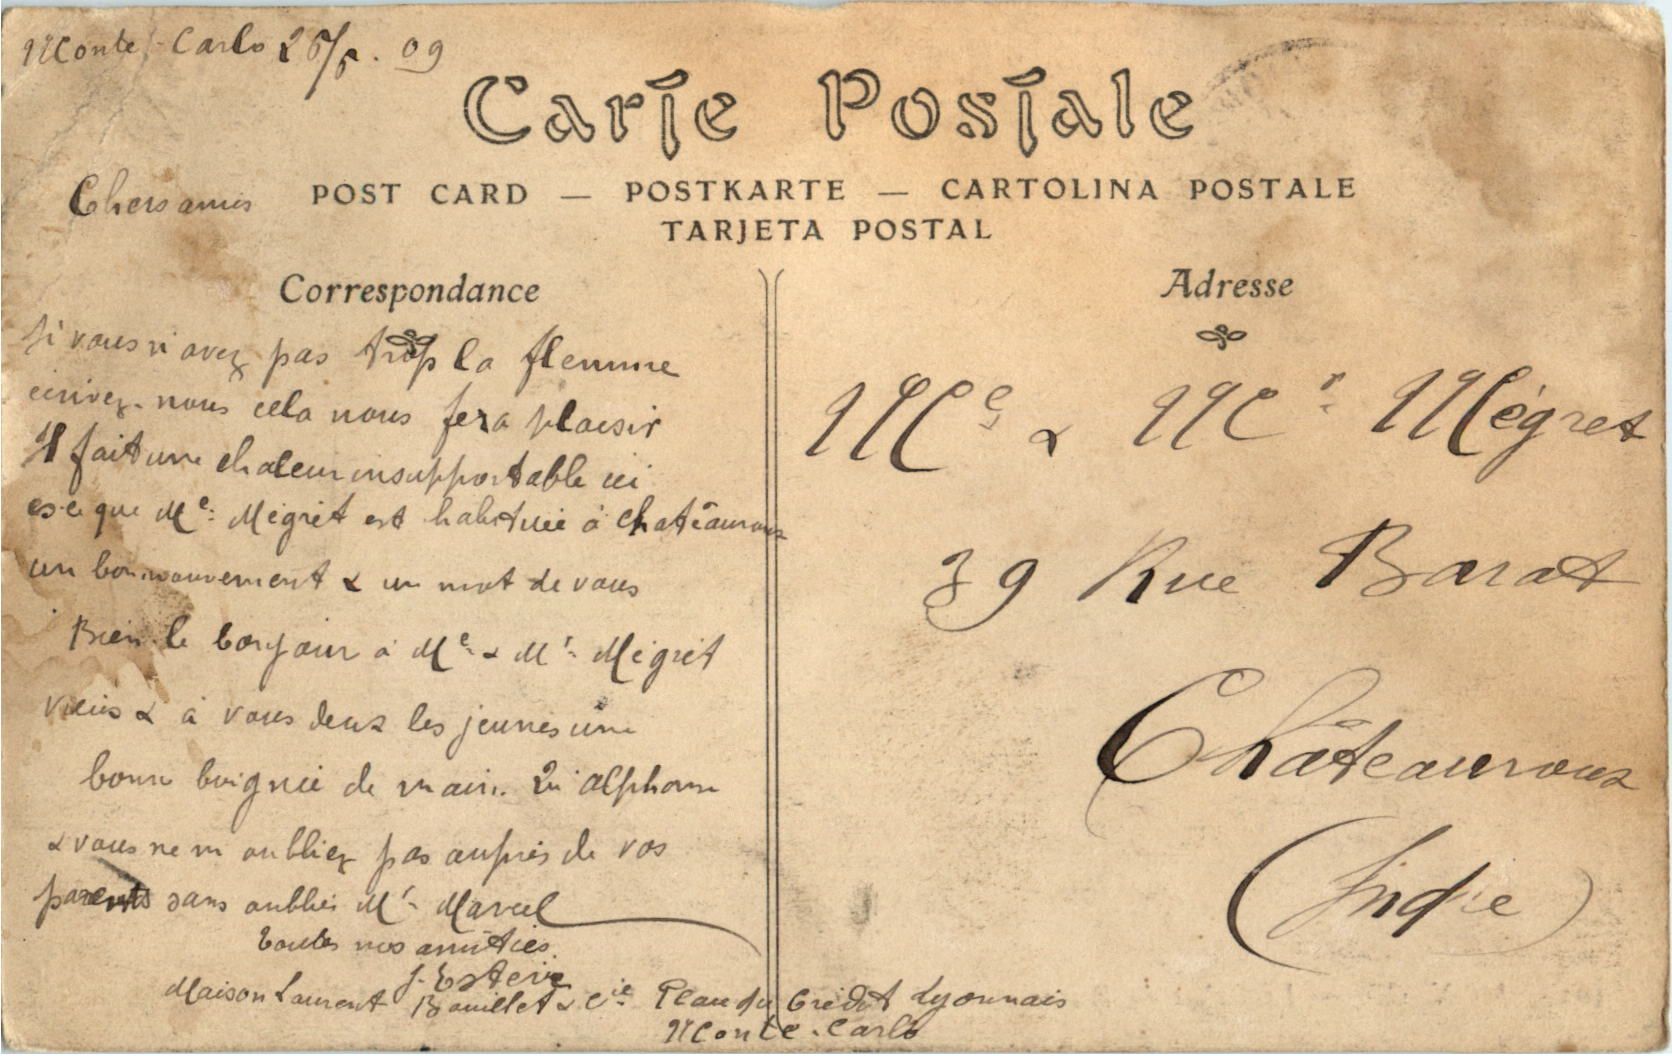 Monte-Carlo 26/5. 09
Carte Postale
Chers amis
POST CARD — POSTKARTE — CARTOLINA POSTALE
TARJETA POSTAL
Correspondance
Si vous n'avez pas trop la flemme
écrivez-nous cela nous fera plaisir
Il fait une chaleur insupportable ici
es-ce que Me Mégret est habituée à Chateauroux
un bon mouvement & un mot de vous
Bien le bonjour à Me & Mr Mégret
vieux & à vous deux les jeunes une
bonne poignée de main. alphonse
& vous ne m'oubliez pas auprès de vos
parents sans oublier Mr Marcel
toutes nos amitiés.
J. Estève
Maison Laurent Bouillet & Cie Place du Crédit Lyonnais
Monte-Carlo
Adresse
Me & Mr Mégret
39 Rue Barat
Châteauroux
(Indre)